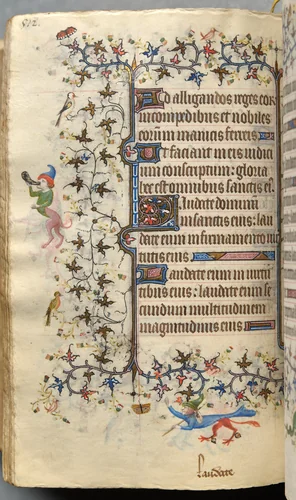 Ad alligandos reges eor
in compedibus et nobiles
eorum in manicis ferreis
Ut faciant in eis iudici
um conscriptum: gloria
hec est omnibus sanctis eius
Laudate dominum
in sanctis eius: lau
date eum in firmamento uir
tutis eius
Laudate eum in uirtu
tibus eius: laudate eum se
cundum multitudinem
magnitudinis eius
laudate